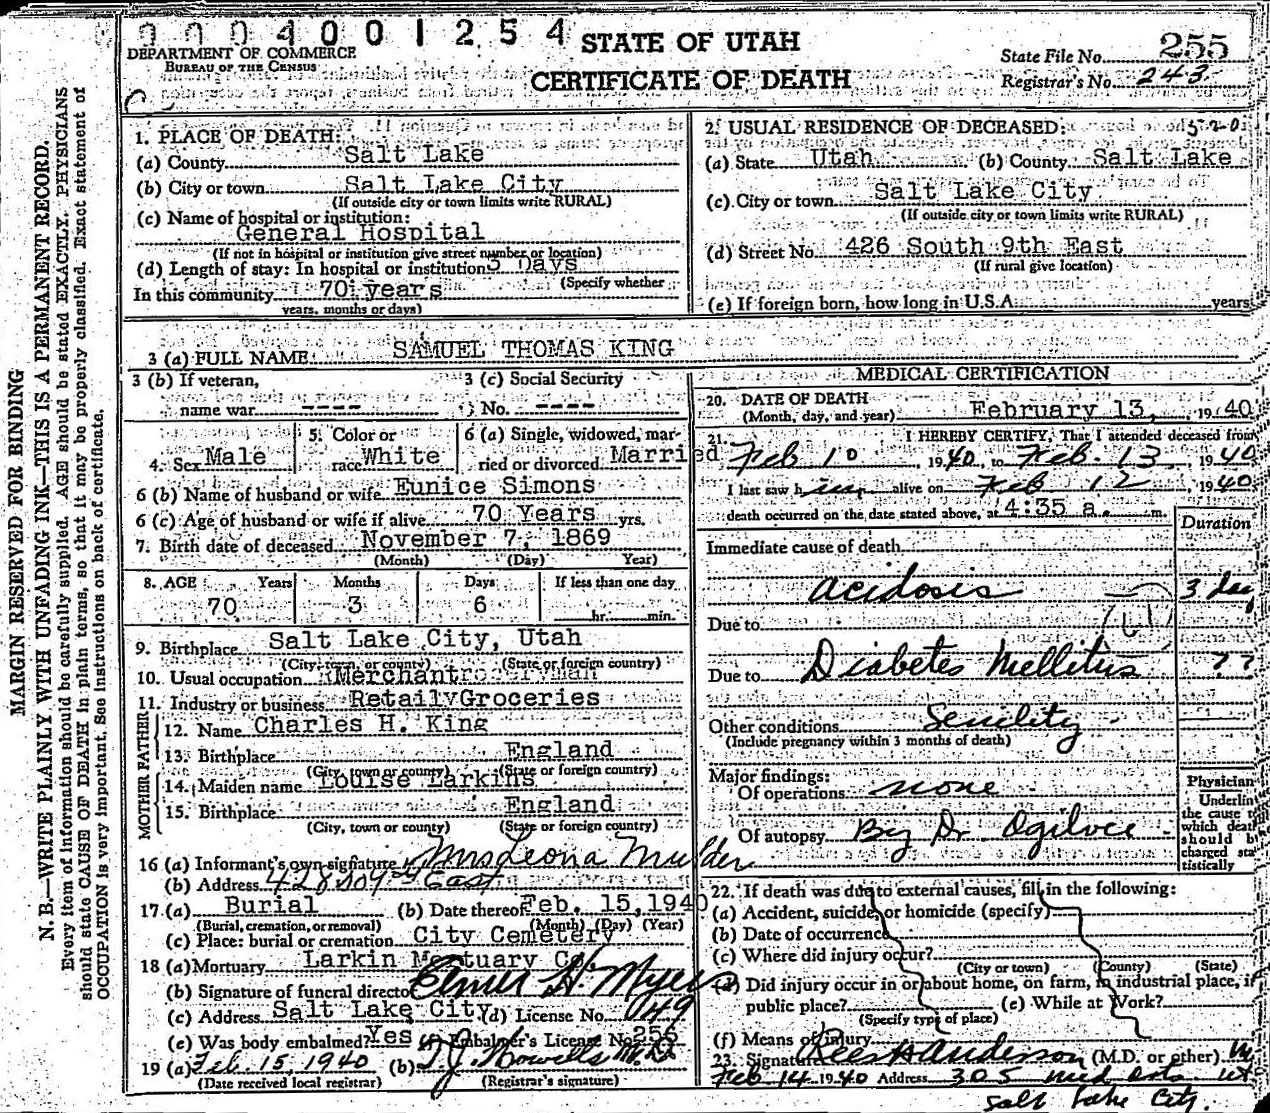 0004001254
DEPARTMENT OF COMMERCE
BUREAU OF THE CENSUS
STATE OF UTAH
CERTIFICATE OF DEATH
State File No. 255
Registrar's No. 243
MARGIN RESERVED FOR BINDING
N. B.—WRITE PLAINLY WITH UNFADING INK—THIS IS A PERMANENT RECORD.
Every item of information should be carefully supplied. AGE should be stated EXACTLY. PHYSICIANS
should state CAUSE OF DEATH in plain terms, so that it may be properly classified. Exact statement of
OCCUPATION is very important. See instructions on back of certificate.
1. PLACE OF DEATH:
(a) County Salt Lake
(b) City or town Salt Lake City
(If outside city or town limits write RURAL)
(c) Name of hospital or institution:
General Hospital
(If not in hospital or institution give street number or location)
(d) Length of stay: In hospital or institution 3 Days
(Specify whether
In this community 70 years
years, months or days)
2. USUAL RESIDENCE OF DECEASED:
(a) State Utah (b) County Salt Lake
(c) City or town Salt Lake City
(If outside city or town limits write RURAL)
(d) Street No. 426 South 9th East
(If rural give location)
(e) If foreign born, how long in U.S.A. years
3 (a) FULL NAME SAMUEL THOMAS KING
3 (b) If veteran,
name war ----
3 (c) Social Security
No. ----
4. Sex Male
5. Color or
race White
6 (a) Single, widowed, mar-
ried or divorced Married
6 (b) Name of husband or wife Eunice Simons
6 (c) Age of husband or wife if alive 70 Years yrs.
7. Birth date of deceased November 7, 1869
(Month) (Day) Year)
8. AGE Years Months Days If less than one day
70 3 6 hr. min.
9. Birthplace Salt Lake City, Utah
(City, town, or county) (State or foreign country)
10. Usual occupation Merchant
11. Industry or business Retail Groceries
FATHER
12. Name Charles H. King
13. Birthplace England
(City, town or county) (State or foreign country)
MOTHER
14. Maiden name Louise Larkins
15. Birthplace England
(City, town or county) (State or foreign country)
16 (a) Informant's own signature Mrs Leona Mulder
(b) Address 428 So 9th East
17 (a) Burial (b) Date thereof Feb. 15, 1940
(Burial, cremation, or removal) (Month) (Day) (Year)
(c) Place: burial or cremation City Cemetery
18 (a) Mortuary Larkin Mortuary Co.
(b) Signature of funeral director Elmer H. Myers
(c) Address Salt Lake City (d) License No. 149
(e) Was body embalmed? Yes (f) Embalmer's License No. 256
19 (a) Feb. 15, 1940 (b) T.J. Howells M.D.
(Date received local registrar) (Registrar's signature)
MEDICAL CERTIFICATION
20. DATE OF DEATH
(Month, day, and year) February 13, 1940
21. I HEREBY CERTIFY, That I attended deceased from
Feb 10, 1940, to Feb. 13, 1940
I last saw him alive on Feb 12, 1940
death occurred on the date stated above, at 4:35 a. m.
Duration
Immediate cause of death
acidosis 3 day
Due to
Due to Diabetes Mellitus ??
Other conditions Senility
(Include pregnancy within 3 months of death)
Major findings:
Of operations none
Of autopsy By Dr Ogilvie
Physician
Underlin
the cause t
which deat
should b
charged sta
tistically
22. If death was due to external causes, fill in the following:
(a) Accident, suicide, or homicide (specify)
(b) Date of occurrence
(c) Where did injury occur?
(City or town) (County) (State)
(d) Did injury occur in or about home, on farm, in industrial place, in
public place? (e) While at Work?
(Specify type of place)
(f) Means of injury
23. Signature Rees H Anderson (M.D. or other)
Feb 14 1940 Address 305 Med Arts
Salt Lake City.